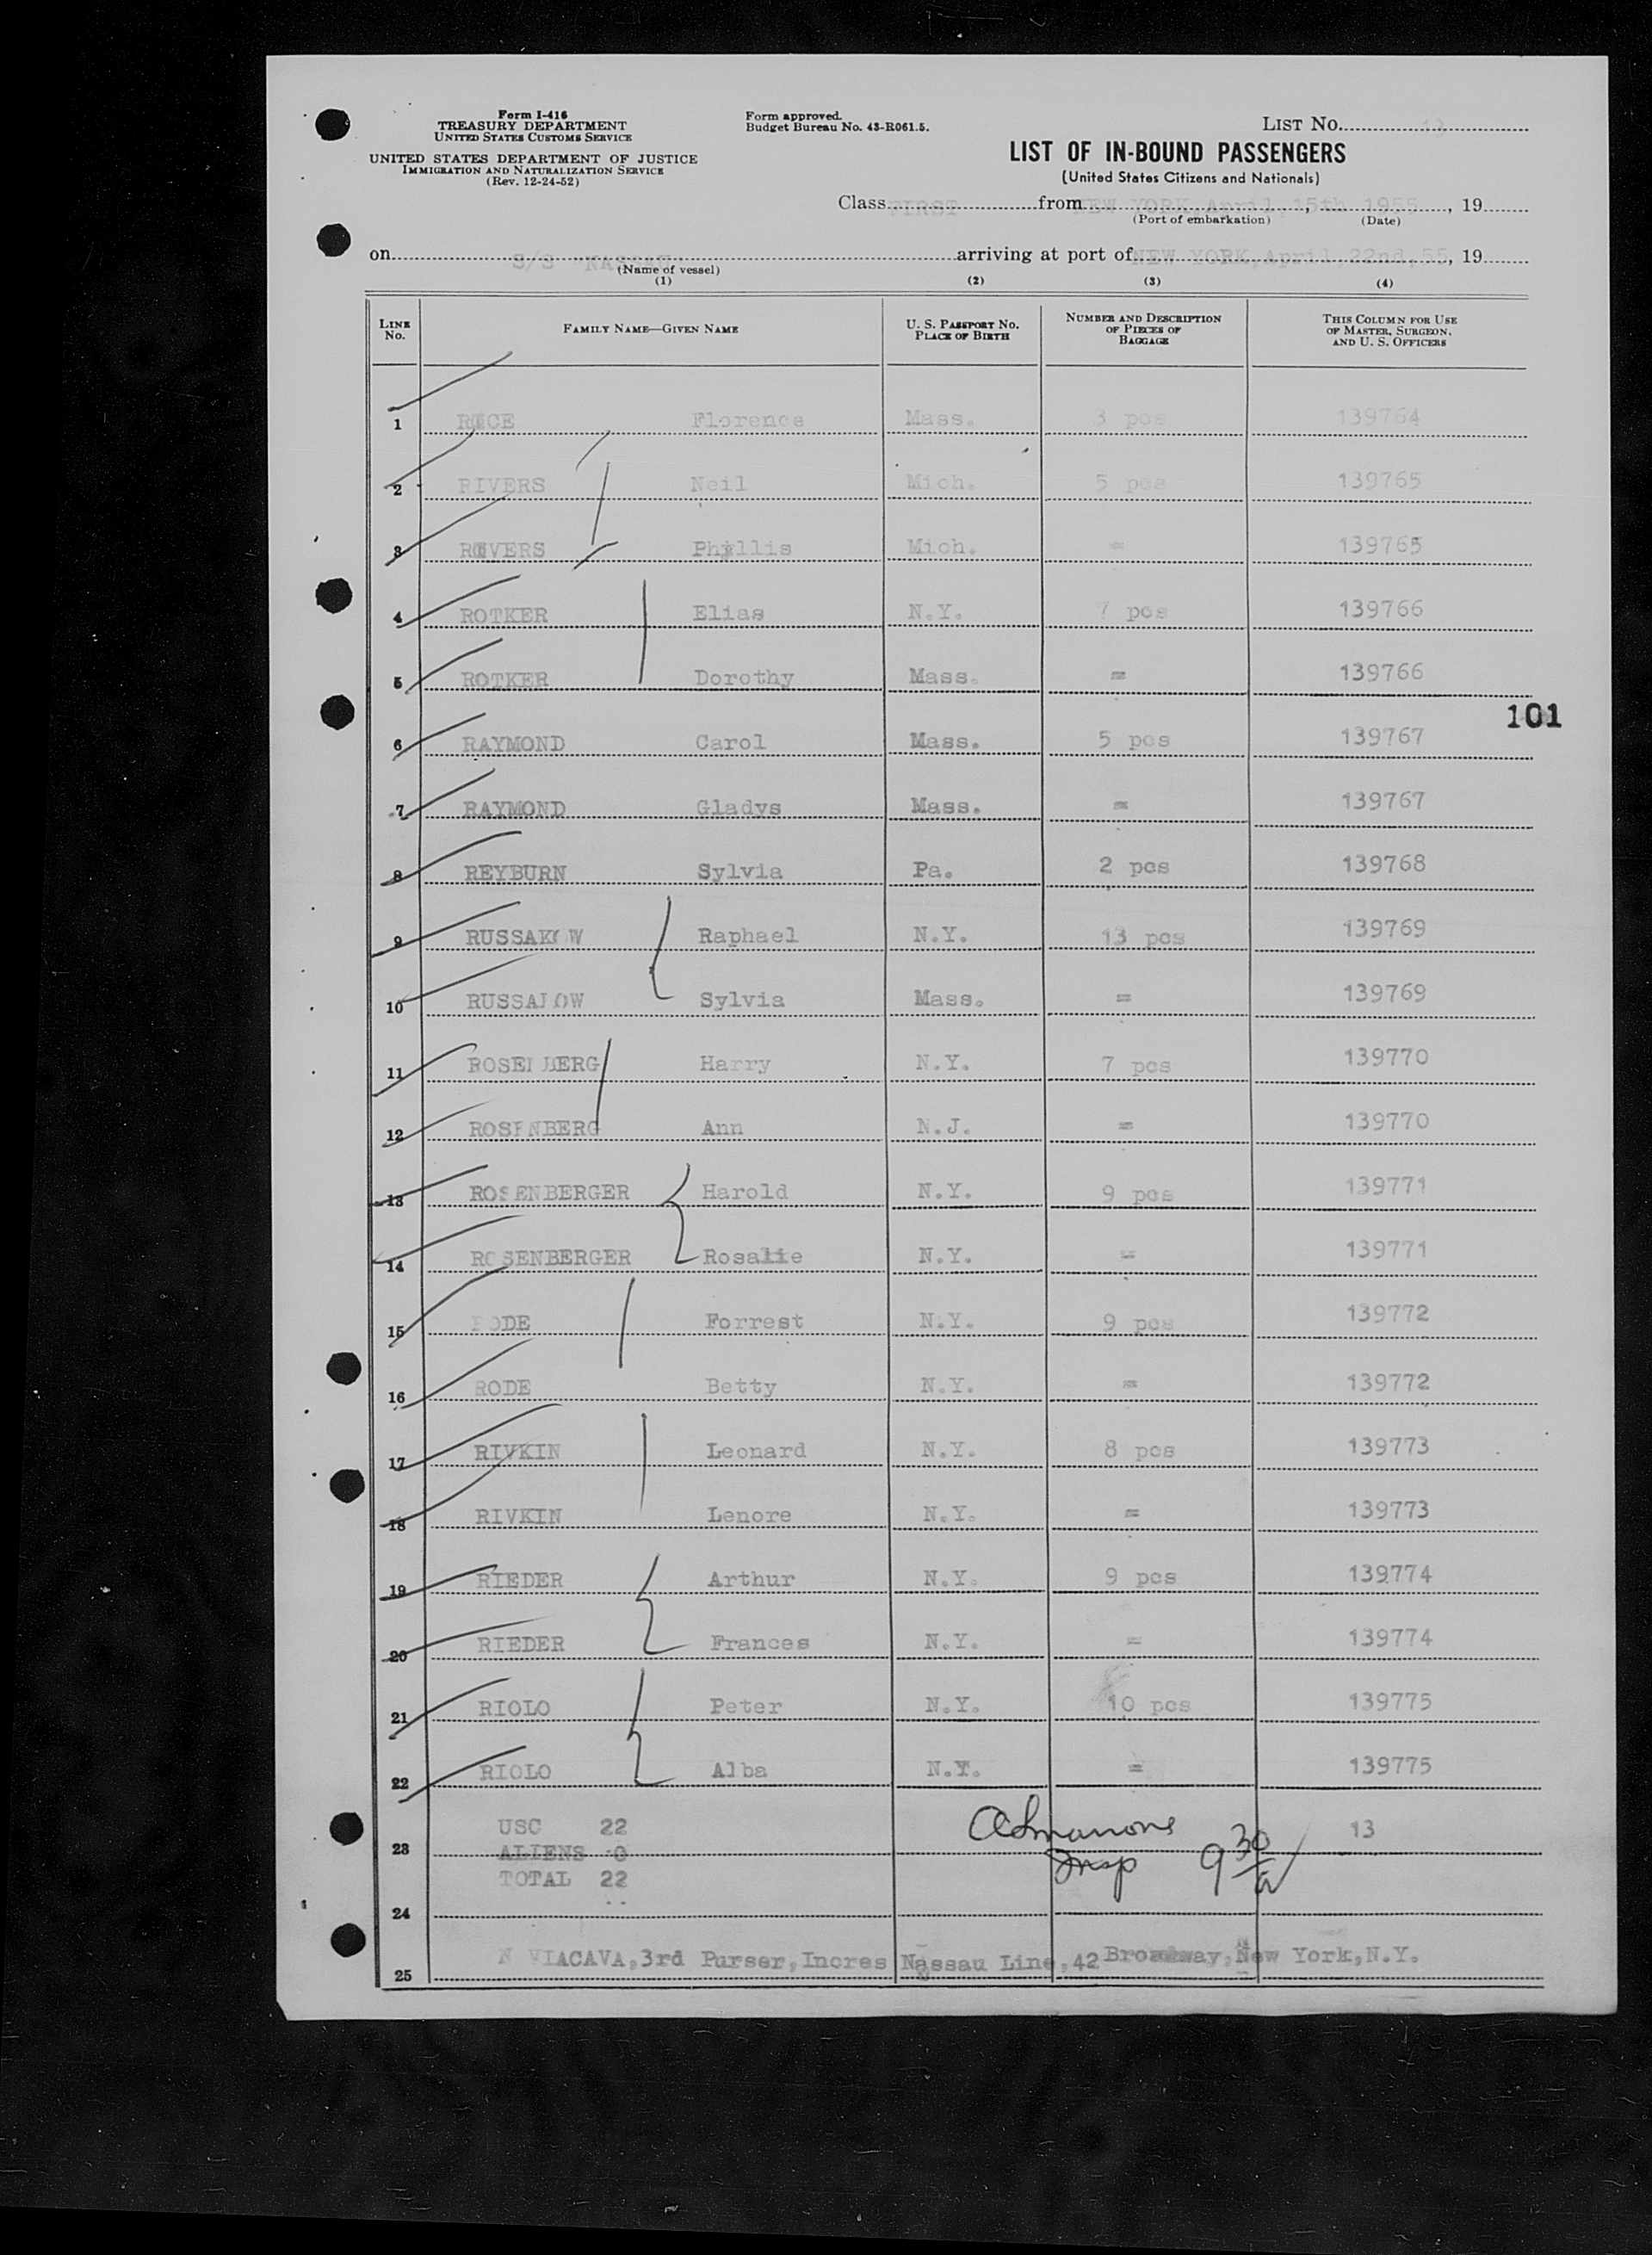 Form I-416
TREASURY DEPARTMENT
UNITED STATES CUSTOMS SERVICE
UNITED STATES DEPARTMENT OF JUSTICE
IMMIGRATION AND NATURALIZATION SERVICE
(Rev. 12-24-52)
Form approved.
Budget Bureau No. 43-R061.5.
LIST No. 13
LIST OF IN-BOUND PASSENGERS
(United States Citizens and Nationals)
Class FIRST from NEW YORK, April, 15th 1955, 19
(Port of embarkation) (Date)
on S/S "NASSAU" arriving at port of NEW YORK, April, 22nd, 55, 19
(Name of vessel)
(1) (2) (3) (4)
LINE No. FAMILY NAME—GIVEN NAME U. S. PASSPORT No. PLACE OF BIRTH NUMBER AND DESCRIPTION OF PIECES OF BAGGAGE THIS COLUMN FOR USE OF MASTER, SURGEON, AND U. S. OFFICERS
1 RICE Florence Mass. 3 pcs 139764
2 RIVERS Neil Mich. 5 pcs 139765
3 RIVERS Phyllis Mich. = 139765
4 ROTKER Elias N.Y. 7 pcs 139766
5 ROTKER Dorothy Mass. = 139766
101
6 RAYMOND Carol Mass. 5 pcs 139767
7 RAYMOND Gladys Mass. = 139767
8 REYBURN Sylvia Pa. 2 pcs 139768
9 RUSSAKOW Raphael N.Y. 13 pcs 139769
10 RUSSAKOW Sylvia Mass. = 139769
11 ROSENBERG Harry N.Y. 7 pcs 139770
12 ROSENBERG Ann N.J. = 139770
13 ROSENBERGER Harold N.Y. 9 pcs 139771
14 ROSENBERGER Rosalie N.Y. = 139771
15 RODE Forrest N.Y. 9 pcs 139772
16 RODE Betty N.Y. = 139772
17 RIVKIN Leonard N.Y. 8 pcs 139773
18 RIVKIN Lenore N.Y. = 139773
19 RIEDER Arthur N.Y. 9 pcs 139774
20 RIEDER Frances N.Y. = 139774
21 RIOLO Peter N.Y. 10 pcs 139775
22 RIOLO Alba N.Y. = 139775
USC 22 13
23 ALIENS 0 Insp 9 30/a
TOTAL 22
24
25 N VIACAVA, 3rd Purser, Incres Nassau Line, 42 Broadway, New York, N.Y.